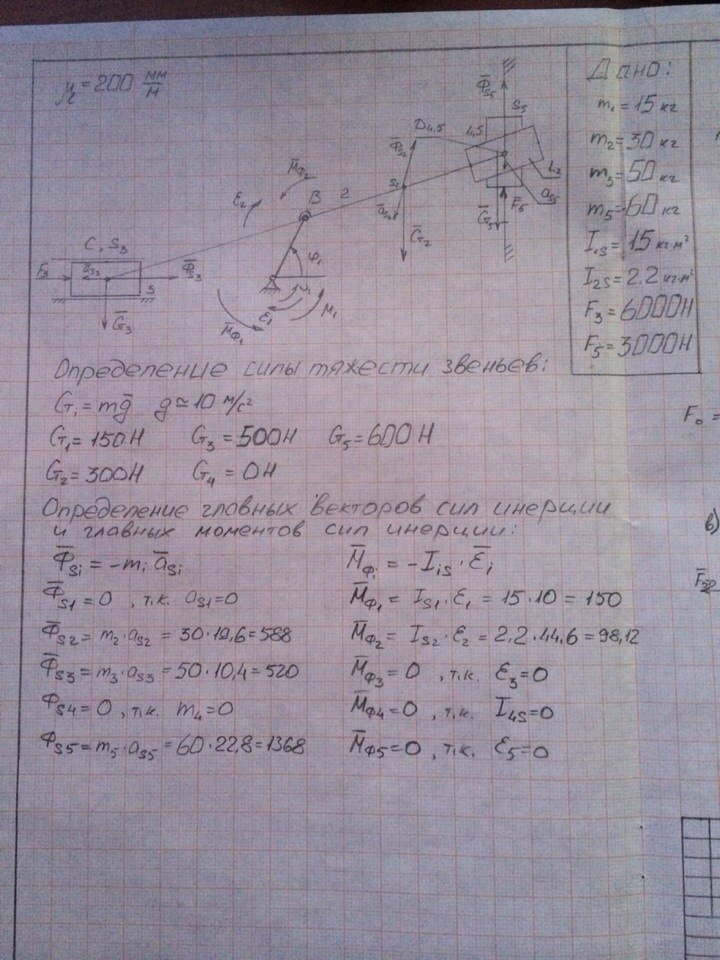 μ = 200 мм/м
Дано:
m₁ = 15 кг
m₂ = 30 кг
m₃ = 50 кг
m₅ = 60 кг
I₁s = 15 кг·м²
I₂s = 2.2 кг·м²
F₃ = 6000Н
F₅ = 3000Н
Φ̄s5
S₅
D4,5
4,5
Φ̄s2
S₂
as2
Ḡ₂
L₂
as5
F₅
Ḡ₅
M̄Φ2
ε₂
B
2
φ₁
ω₁
ε̄₁
M₁
M̄Φ1
C, S₃
F₃
as3
Φ̄s3
Ḡ₃
Определение силы тяжести звеньев:
Gᵢ = mḡ g ≃ 10 м/с²
G₁ = 150Н G₃ = 500Н G₅ = 600Н
G₂ = 300Н G₄ = 0Н
Определение главных векторов сил инерции
и главных моментов сил инерции:
Φ̄si = -mᵢ āsi M̄Φi = -Iis · ε̄i
Φ̄s1 = 0 , т.к. as1=0 M̄Φ1 = Is1 · ε₁ = 15 · 10 = 150
Φ̄s2 = m₂ · as2 = 30 · 19,6 = 588 M̄Φ2 = Is2 · ε₂ = 2.2 · 44,6 = 98,12
Φ̄s3 = m₃ · as3 = 50 · 10,4 = 520 M̄Φ3 = 0 , т.к. ε₃=0
Φs4 = 0 , т.к. m₄=0 M̄Φ4 = 0 , т.к. I4s=0
Φs5 = m₅ · as5 = 60 · 22,8 = 1368 M̄Φ5 = 0 , т.к. ε₅=0